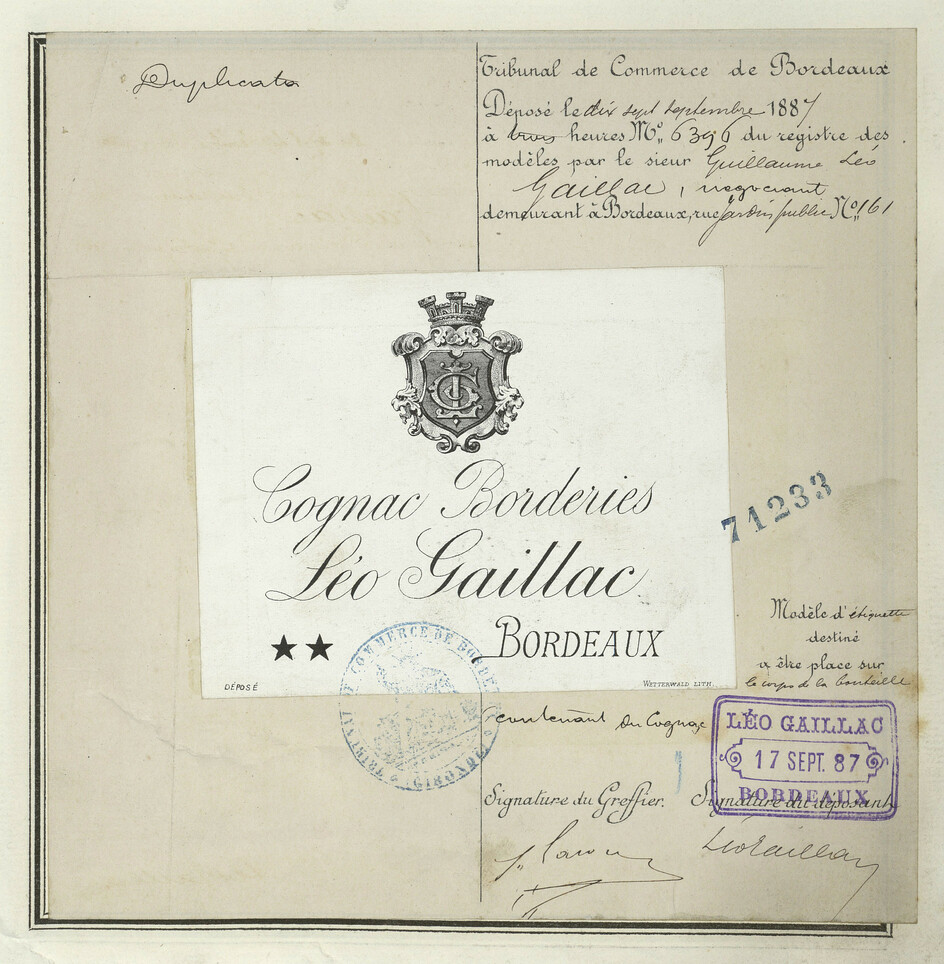 Duplicata
Tribunal de Commerce de Bordeaux
Déposé le dix sept septembre 1887
à trois heures Nº 6396 du registre des
modèles par le sieur Guillaume Léo
Gaillac, négociant
demeurant à Bordeaux, rue Jardin public Nº 161
Cognac Borderies
Léo Gaillac
BORDEAUX
DÉPOSÉ
WETTERWALD LITH.
71233
Modèle d'étiquette
destiné
a être place sur
le corps de la bouteille
contenant du Cognac
TRIBUNAL DE COMMERCE DE BORDEAUX
(GIRONDE)
LÉO GAILLAC
17 SEPT. 87
BORDEAUX
Signature du Greffier. Signature du déposant
Léo Gaillac